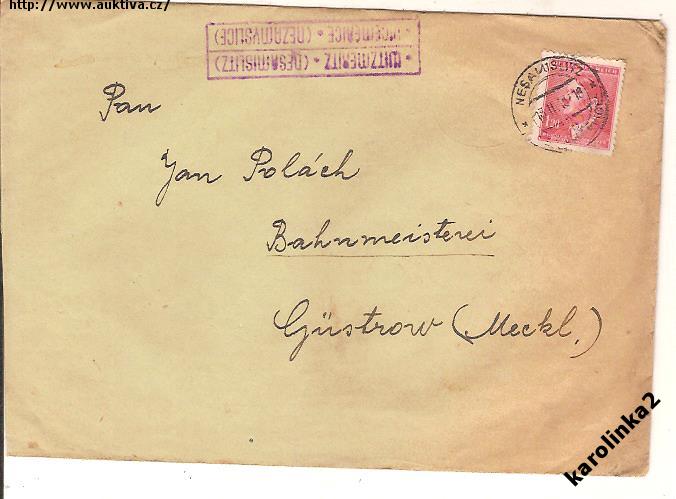 http://www.auktiva.cz/
WITZMERITZ * (NESAMISLITZ)
VICEMĚŘICE * (NEZAMYSLICE)
NESAMISLITZ
1.20
Pan
Jan Polách
Bahnmeisterei
Güstrow (Meckl.)
karolinka2